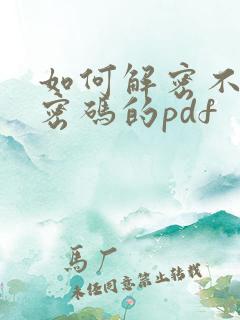 如何解密不
密碼的pdf
馬厂
未经同意禁止转载